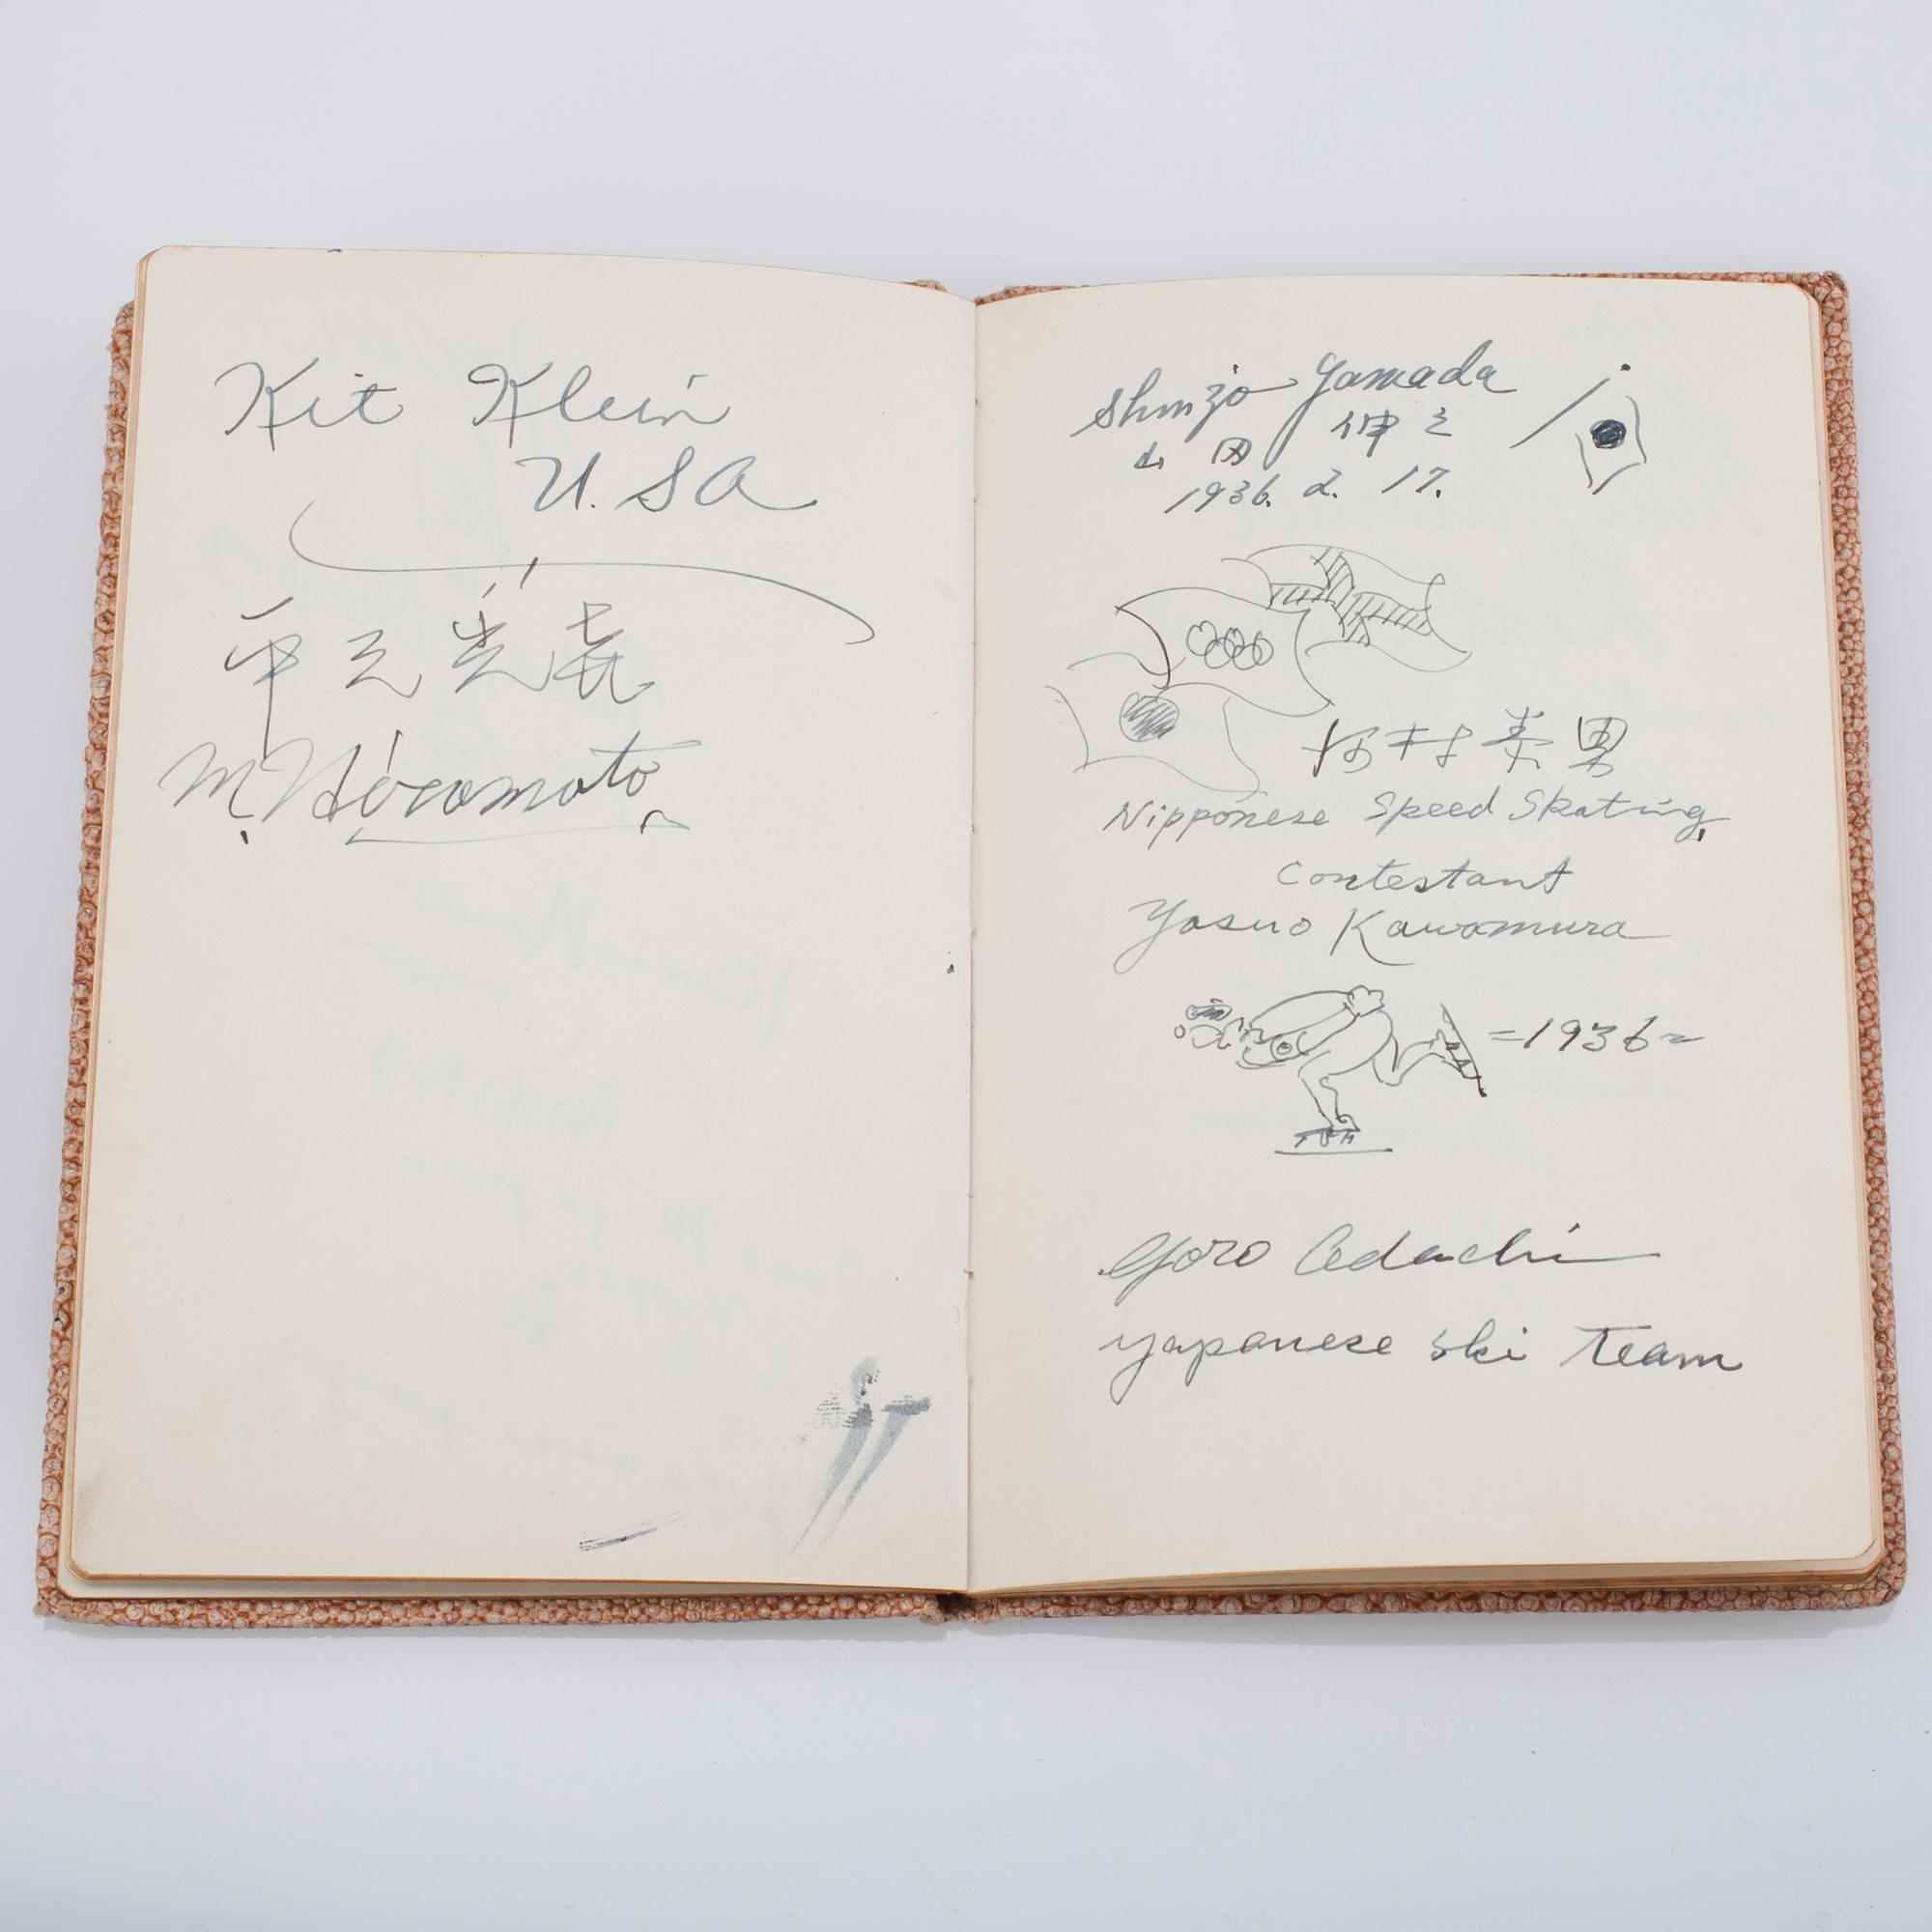 Kit Klein
U.SA
Shinzo Yamada
山田 伸三
1936. 2. 17.
河村泰男
Nipponese Speed Skating
Contestant
Yasuo Kawamura
=1936=
Goro Adachi
yapanese ski team